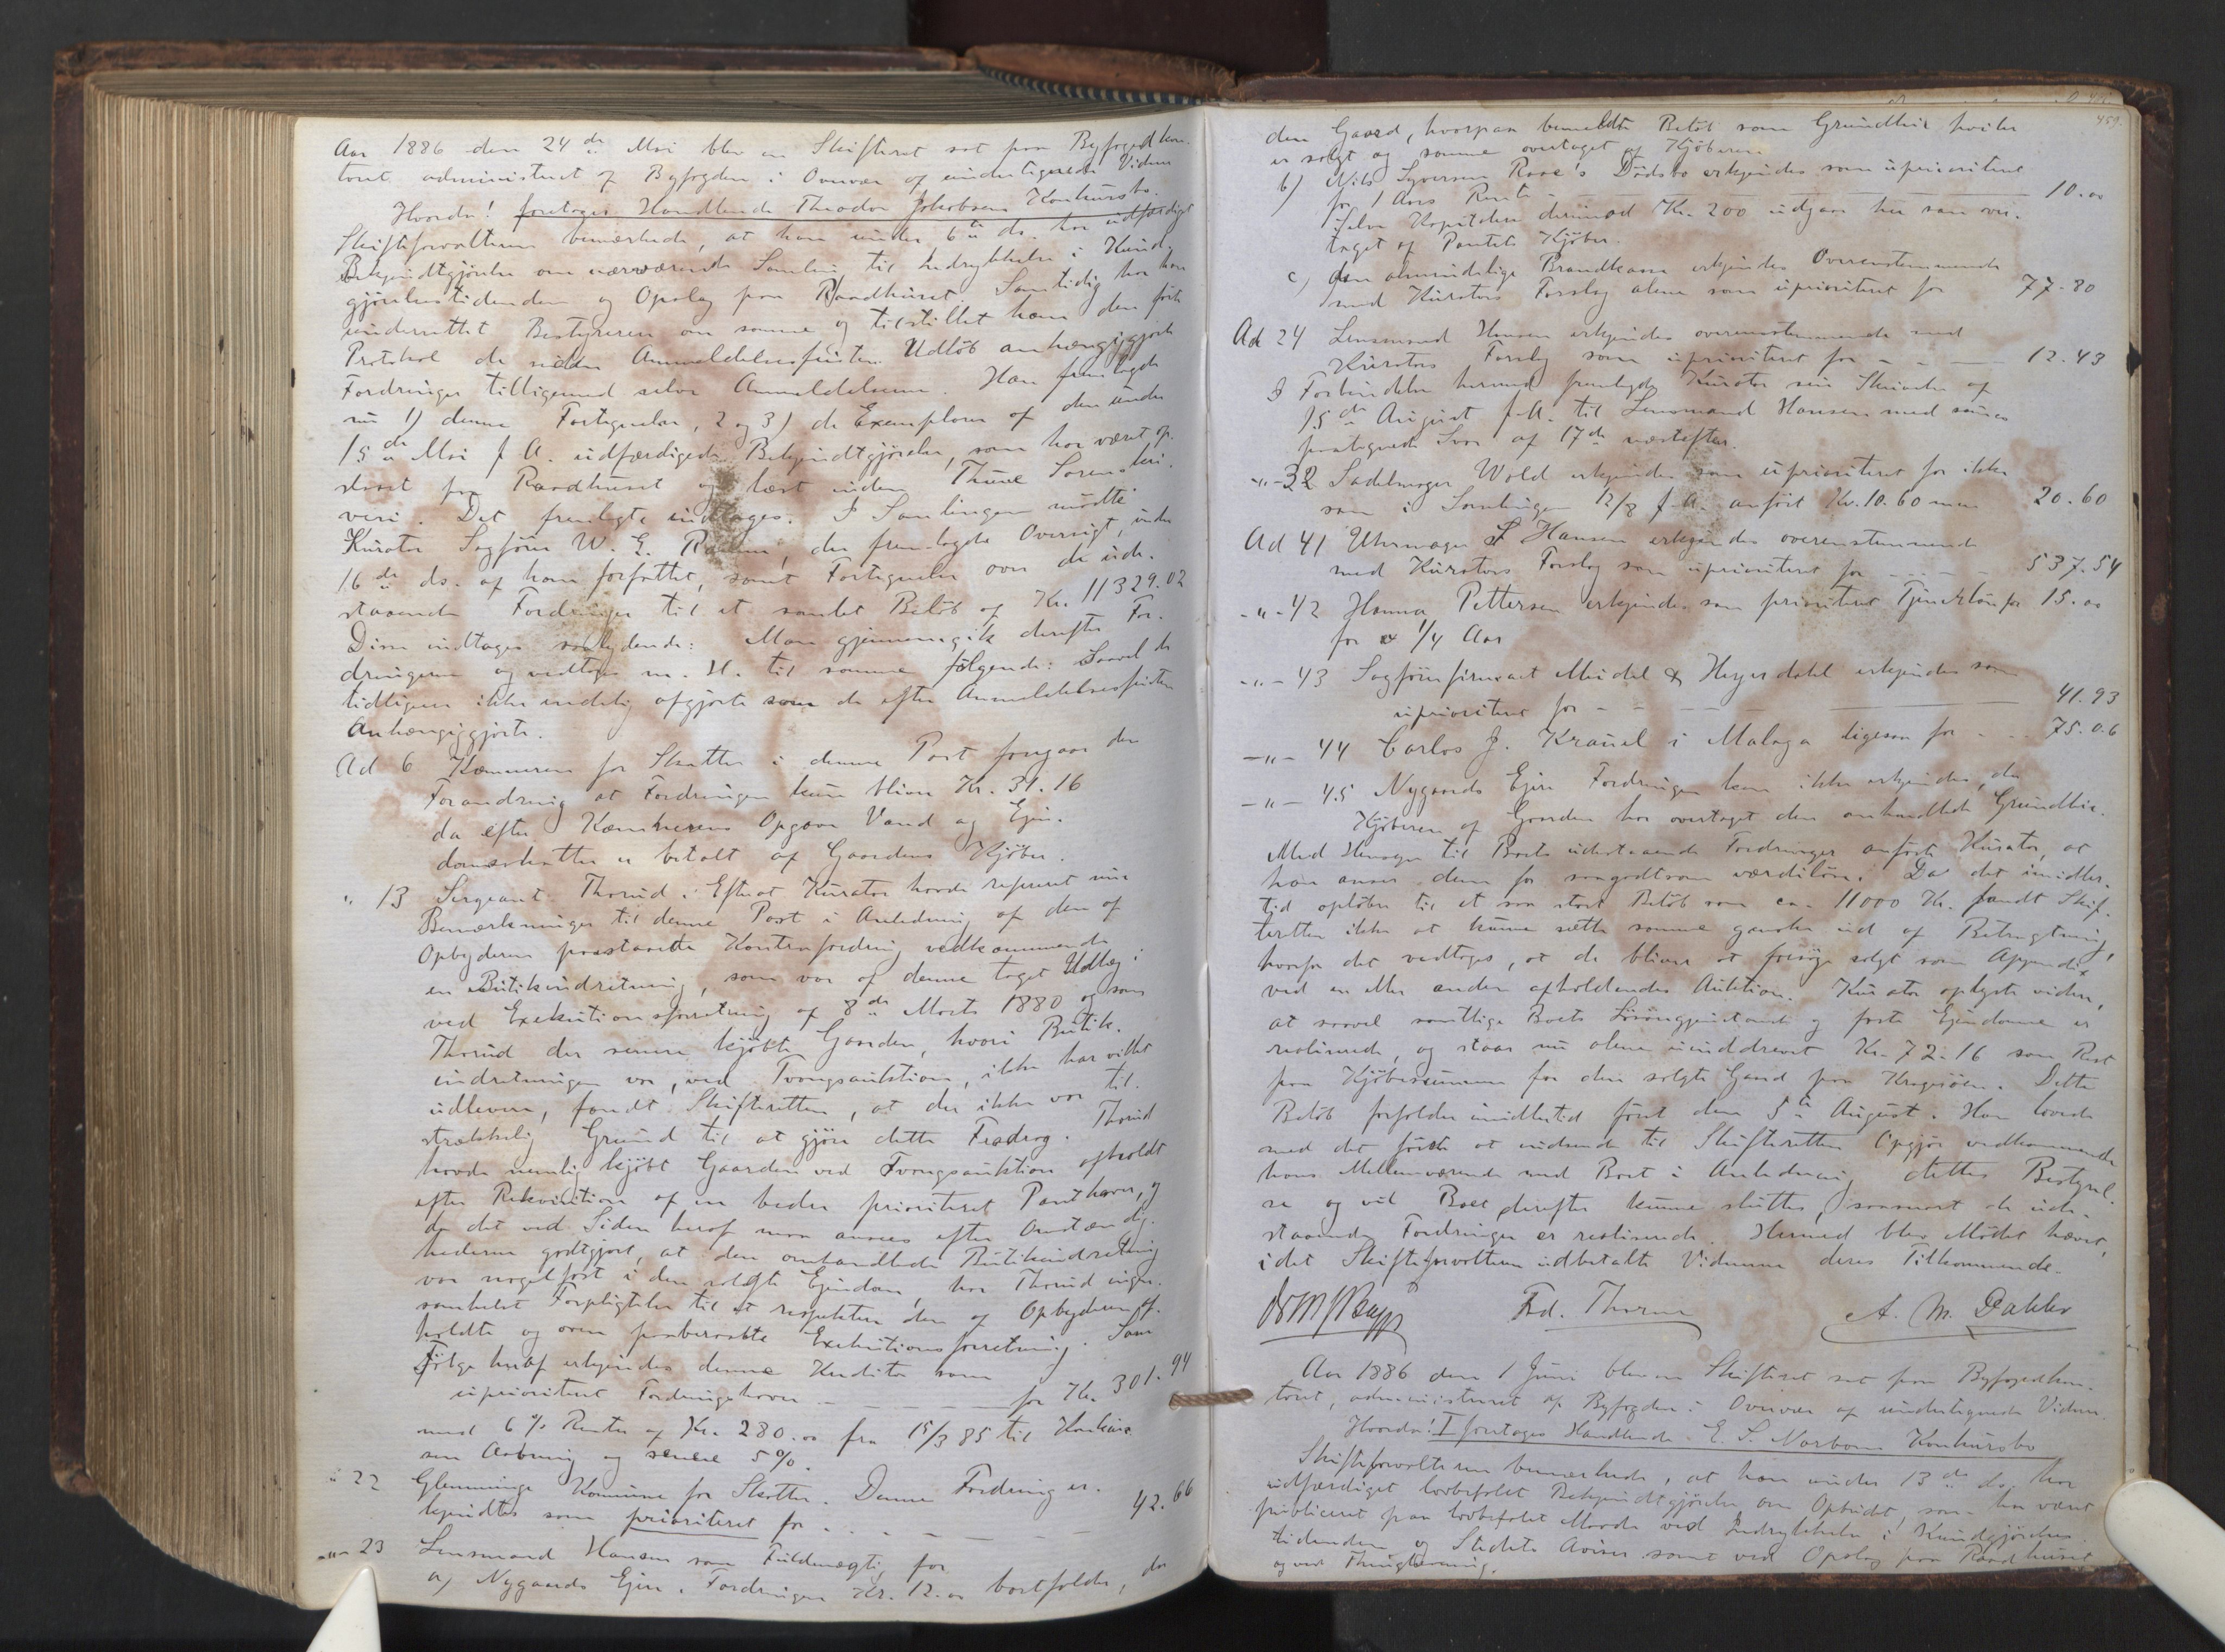 Aar 1886 den 24de Mai blev en Skifteret sat paa Byfogedkon-
toret administreret af Byfogden i Overvær af undertegnede Vidner
Hvorda! foretages Handlende Theodor Jakobsens Konkursbo.
Skifteforvalteren bemærkede, at han under 6te ds. har udfærdiget
Bekjendtgjørelse om nærværende Samling til Indrykkelse i Kund-
gjørelsestidenden og Opslag paa Raadhuset. Samtidig har han
underrettet Bestyreren om samme og tilstillet ham den førte
Protokol de siden Anmeldelsesfristens Udløb anhængiggjorte
Fordringer tilligemed selve Anmeldelserne. Han fremlagde
nu 1) denne Fortegnelse, 2 og 3) de Exemplarer af den under
15de Mai f. A. udfærdigede Bekjendtgjørelse, som har været op-
slaaet paa Raadhuset og læst inden Thune Sorenskri-
veri. Det fremlagte indtages. I Samlingen mødte
Kurator Sagfører W. E. der fremlagde Oversigt, under
16de ds. af ham forfattet, samt Fortegnelse over de ude-
staaende Fordringer til et samlet Beløb af Kr. 11329.02
Disse indtages saalydende: Man gjennemgik derefter For-
dringerne og vedtoges m. H. til samme følgende: Saavel de
tidligere ikke endelig afgjorte som de efter Anmeldelsesfristen
Anhængiggjorte.
Ad 6 Kæmneren for Skatter i denne Post foregaar den
Forandring at Fordringen kun bliver Kr. 31.16
da efter Kæmnerens Opgave Vand og Ejen-
domsskatter er betalt af Gaardens Kjøber.
" 13 Sergeant Thorud. Efterat Kurator havde refereret sine
Bemærkninger til denne Post i Anledning af den af
Opbyderen paastaaede Kontrafordring vedkommende
en Butikindretning, som var af denne taget Udlæg i
ved Exekutionsforretning af 8de Marts 1880 og som
Thorud der senere kjøbte Gaarden, hvori Butik-
indretningen var, ved Tvangsauktion, ikke har villet
udlevere, fandt Skifteretten, at der ikke var til-
strækkelig Grund til at gjøre dette Fradrag. Thorud
havde nemlig kjøbt Gaarden ved Tvangsauktion afholdt
efter Rekvisition af en bedre prioriteret Panthaver, og
da det ved Siden heraf maa ansees efter Omstændig-
hederne godtgjort, at den omhandlede Butikindretning
var nagelfast i den solgte Ejendom, har Thorud ingen-
somhelst Forpligtelse til at respektere den af Opbyderen af-
holdte og oven paaberaabte Exekutionsforretning. Som
Følge heraf erkjendes denne Kreditor som
uprioriteret Fordringshaver - - - for Kr. 301.94
med 6 % Renter af Kr. 280.00 fra 15/3 85 til Konkur-
sens Aabning og senere 5 %.
" 22 Glemminge Kommune for Skatter. Denne Fordring er-
kjendtes som prioriteret for - - - - 42.66
-"- 23 Lensmand Hansen som Fuldmægtig for
a) Nygaards Ejere. Fordringen Kr. 12.00 bortfalder, da
459.
den Gaard, hvorpaa bemeldte Beløb som Grundleie hviler
er solgt og samme overtaget af Kjøberen
b) Nils Syversen Raae's Dødsbo erkjendes som uprioriteret
for 1 Aars Rente - - - 10.00
Selve Kapitalen derimod Kr. 200 udgaar her som over-
taget af Pantets Kjøber.
c) den almindelige Brandkasse erkjendes Overenstemmende
med Kurators Forslag alene som uprioriteret for 77.80
Ad 24 Lensmand Hansen erkjendes overensstemmende med
Kurators Forslag som uprioriteret for - - - 12.43
I Forbindelse hermed fremlagde Kurator sin Skrivelse af
15de August f. A. til Lensmand Hansen med sammes
paategnede Svar af 17de næstefter.
-"- 32 Sadelmager Wold erkjendes som uprioriteret for ikke
som i Samlingen 12/8 f. A. anført Kr. 10.60 men 20.60
Ad 41 Uhrmager S Hansen erkjendes overensstemmende
med Kurators Forslag som uprioriteret for - - - 537.54
-"- 42 Hanna Pettersen erkjendes som prioriteret Tjenerløn for 15.00
for 1/4 Aar
-"- 43 Sagførerfirmaet Meidel & Heyerdahl erkjendes som
uprioriteret for - - - 41.93
-"- 44 Carlos J. Krauel i Malaga ligesaa for - - 75.06
-"- 45 Nygaards Ejere Fordringen kan ikke erkjendes, da
Kjøberen af Gaarden har overtaget den omhandlede Grundleie.
Med Hensyn til Boets udestaaende Fordringer anførte Kurator, at
han anser dem for saagodtsom værdiløse. Da det imidler-
tid opløber til et saa stort Beløb som ca. 11000 Kr. fandt Skif-
teretten ikke at kunne sætte samme ganske ud af Betragtning,
hvorfor det vedtoges, at de bliver at forsøge solgt som Appendix
ved en eller anden afholdendes Auktion. Kurator oplyste videre,
at saavel samtlige Boets Løsøregjenstande og faste Ejendomme er
realiserede, og staar nu alene uinddrevet Kr. 72.16 som Rest
paa Kjøbesummen for den solgte Gaard paa Kragerøen. Dette
Beløb forfalder imidlertid først den 5te August. Han lovede
med det første at indsende til Skifteretten Opgjør vedkommende
hans Mellemværende med Boet i Anledning dettes Bestyrel-
se og vil Boet derefter kunne sluttes, saasnart de ude-
staaende Fordringer er realiserede. Hermed blev Mødet hævet,
idet Skifteforvalteren udbetalte Vidnerne deres Tilkommende.
Frd. Thorm A. M. Dahler
Aar 1886 den 1 Juni blev en Skifteret sat paa Byfogedkon-
toret, administreret af Byfogden i Overvær af undertegnede Vidner.
Hvorda! I foretages Handlende E. S. Narboms Konkursbo
Skifteforvalteren bemærkede, at han under 13de ds. har
udfærdiget lovbefalet Bekjendtgjørelse om Opbudet, som har været
publiceret paa lovbefalet Maade ved Indrykkelse i Kundgjørelses-
tidenden og Stedets Aviser samt ved Opslag paa Raadhuset
og ved Thinglæsning.